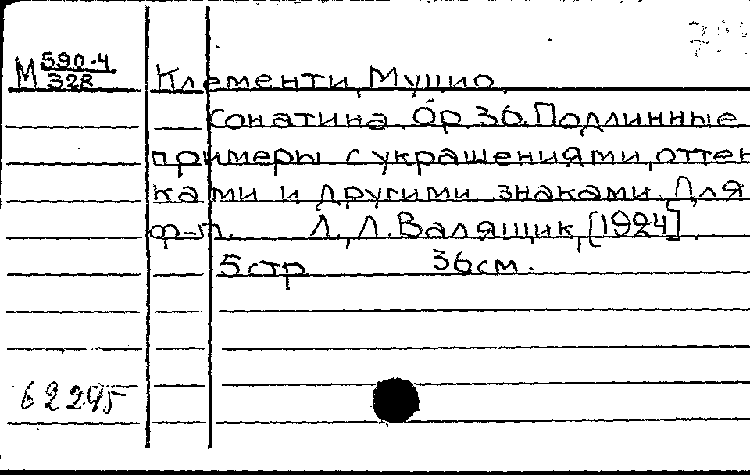 М 590-4/328
Клементи, Муцио.
Сонатина. Op. 36. Подлинные
примеры с украшениями, оттен
ками и другими знаками. Для
ф-п. Л., Л. Валящик, [1924].
5 стр 36 см.
62295